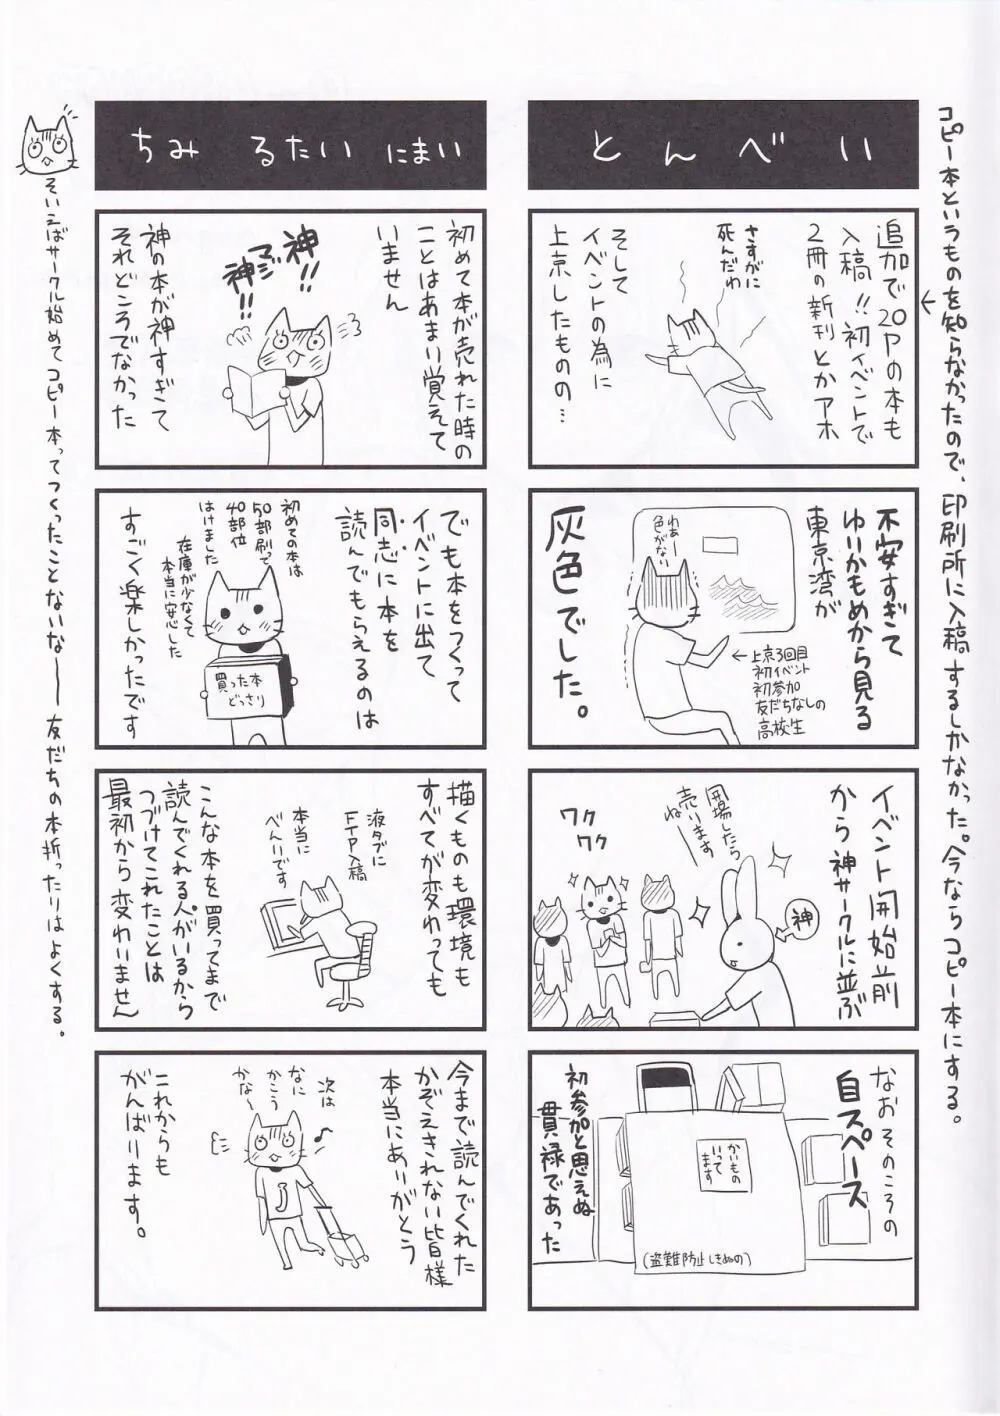 コピー本というものを知らなかったので、印刷所に入稿するしかなかった。今ならコピー本にする。
とんべい
追加で20Pの本も
入稿!!初イベントで
2冊の新刊とかアホ
さすがに
死んだわ
そして
イベントの為に
上京したものの…
不安すぎて
ゆいかもめから見る
東京湾が
わぁー
色がない
灰色でした。
←上京3回目
初イベント
初参加
友だちなしの
高校生
イベント開始前
から神サークルに並ぶ
神
開場したら
売りますね
ワク
ワク
なおそのころの
自スペース
かいもの
いって
ます
(盗難防止しきぬの)
初参加と思えぬ
貫禄であった
ちみ るたい にまい
初めて本が売れた時の
ことはあまい覚えて
いません
神!!
マジ
神!!
神の本が神すぎて
それどころでなかった
でも本をつくって
イベントに出て
同志に本を
読んでもらえるのは
初めての本は
50部刷って
40部位
はけました
在庫が少なくて
本当に安心した
買った本
どっさり
すごく楽しかったです
描くものも環境も
すべてが変わっても
液タブに
FTP入稿
本当に
べんりです
こんな本を買ってまで
読んでくれる人がいるから
つづけてこれたことは
最初から変わいません
今まで読んでくれた
かぞえきれない皆様
本当にありがとう
次は
なに
かこう
かな〜
これからも
がんばります。
そいえばサークル始めてコピー本ってつくったことないな――友だちの本折ったりはよくする。